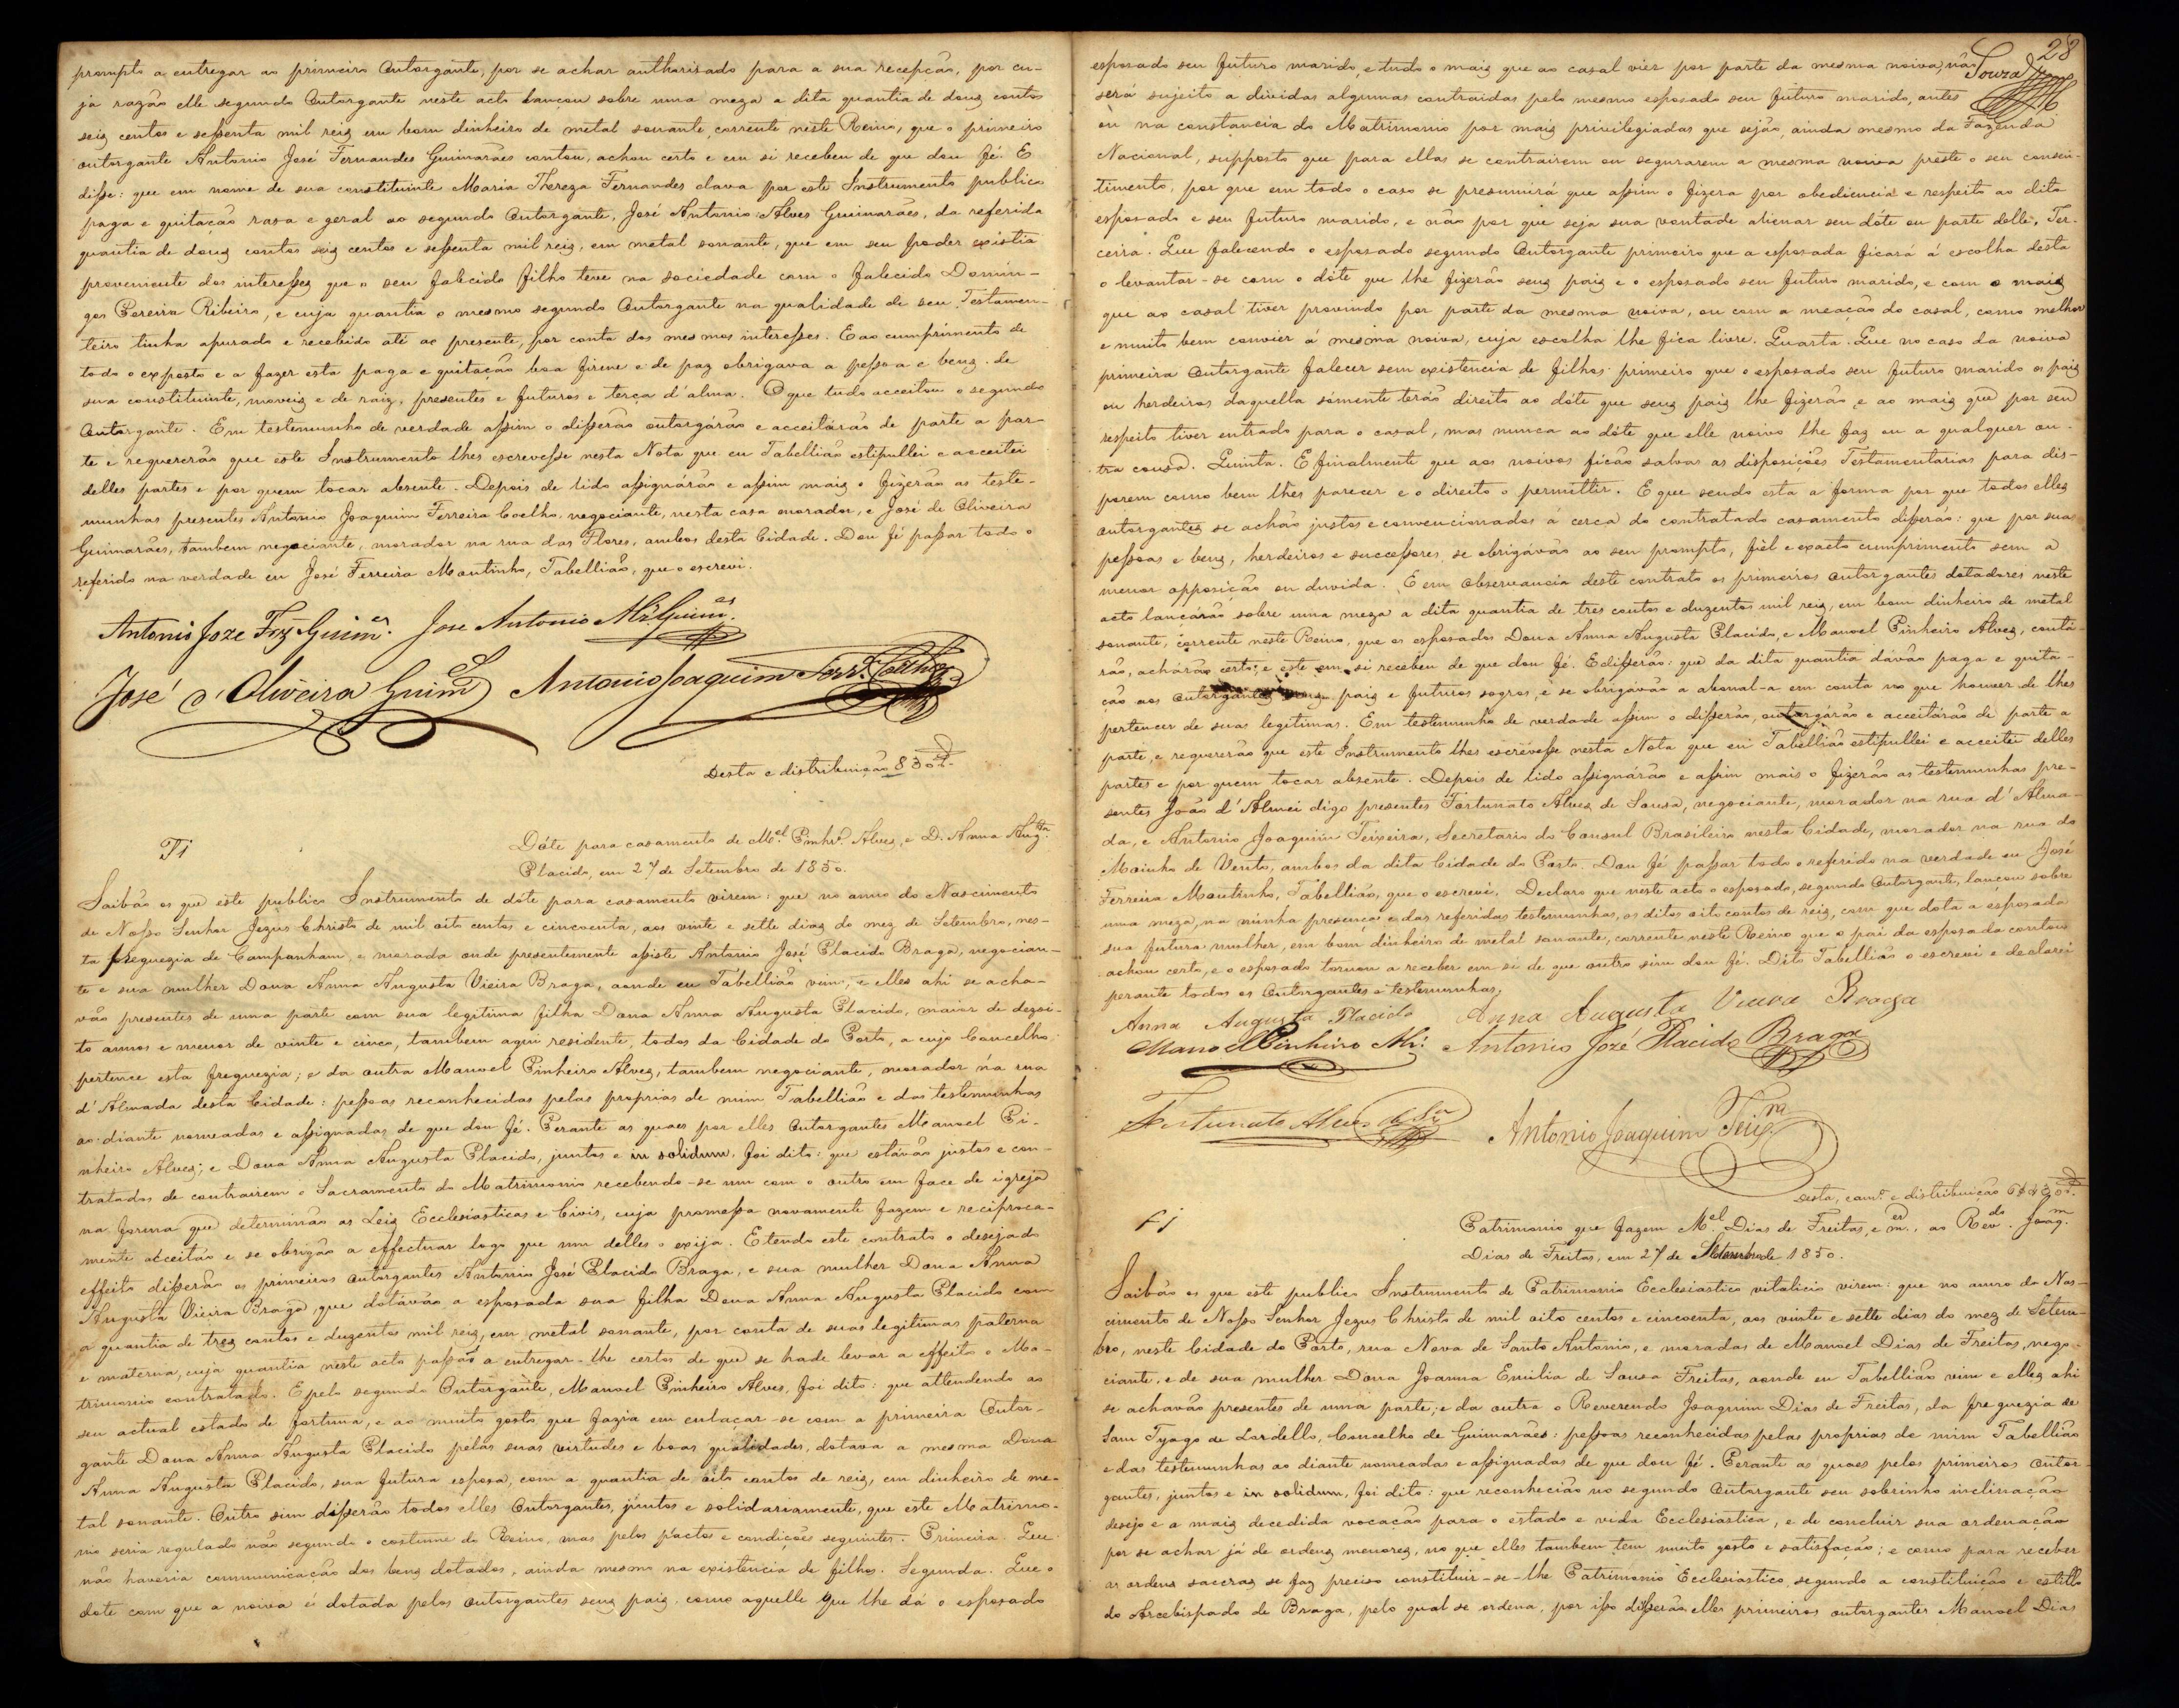 prompto a entregar ao primeiro Outorgante, por se achar authorisado para a sua recepção, por cu-
ja razão elle segundo Outorgante neste acto lançou sobre uma meza a dita quantia de douz contos
seiz centos e seſsenta mil reiz em bom dinheiro de metal sonante, corrente neste Reino, que o primeiro
outorgante Antonio José Fernandes Guimarães contou, achou certo e em si recebeu de que dou fé. E
diſse: que em nome de sua constituinte Maria Thereza Fernandes dava por este Instrumento publico
paga e quitação rasa e geral ao segundo Outorgante, José Antonio Alves Guimarães, da referida
quantia de douz contos seiz centos e seſsenta mil reiz, em metal sonante, que em seu poder existia
proveniente dos intereſsez que o seu falecido filho teve na sociedade com o falecido Domin-
gos Pereira Ribeiro, e cuja quantia o mesmo segundo Outorgante na qualidade de seu Testamen-
teiro tinha apurado e recebido até ao presente, por conta dos mesmos intereſses. E ao cumprimento de
todo o exposto e a fazer esta paga e quitação boa firme e de paz obrigava a peſsoa e benz de
sua constituinte, moveiz e de raiz, presentes e futuros e terça d'alma. O que tudo acceitou o segundo
Outorgante. Em testemunho de verdade aſsim o diſserão outorgárão e acceitárão de parte a par-
te e requererão que este Instrumento lhes escreveſse nesta Nota que eu Tabellião estipullei e acceitei
delles partes e por quem tocar absente. Depois de lido aſsignárão e aſsim maiz o fizerão as teste-
munhas presentes Antonio Joaquim Ferreira Coelho, negociante, nesta casa morador, e José de Oliveira
Guimarães, tambem negociante, morador na rua das Flores, ambos desta Cidade. Dou fé paſsar todo o
referido na verdade eu José Ferreira Moutinho, Tabellião, que o escrevi.
Antonio Joze Frz Guim.es Jose Antonio Alz. Guim.es
José d'Oliveira Guim.es Antonio Joaquim Ferr.a Coelho
Desta e distribuição 830 r.
Dóte para casamento de M.el Pinhr.o Alves, e D. Anna Aug.ta
Placido, em 27 de Setembro de 1850.
Saibão os que este publico Instrumento de dóte para casamento virem: que no anno do Nascimento
de Noſso Senhor Jezus Christo de mil oito centos e cincoenta, aos vinte e sette dias do mez de Setembro, nes-
ta freguezia de Campanham, e morada onde presentemente aſsiste Antonio José Placido Braga, negocian-
te e sua mulher Dona Anna Augusta Vieira Braga, aonde eu Tabellião vim, e elles ahi se acha-
vão presentes de uma parte com sua legitima filha Dona Anna Augusta Placido, maior de dezoi-
to annos e menor de vinte e cinco, tambem aqui residente, todos da Cidade do Porto, a cujo Concelho
pertence esta freguezia; e da outra Manoel Pinheiro Alvez, tambem negociante, morador na rua
d'Almada desta Cidade: peſsoas reconhecidas pelas proprias de mim Tabellião e das testemunhas
ao diante nomeadas e aſsignadas de que dou fé. Perante as quaes por elles Outorgantes Manoel Pi-
nheiro Alvez; e Dona Anna Augusta Placido, juntos e in solidum, foi dito: que estávão justos e con-
tratados de contrairem o Sacramento do Matrimonio recebendo-se um com o outro em face de igreja
na forma que determinão as Leiz Ecclesiasticas e Civis, cuja promeſsa novamente fazem e reciproca-
mente acceitão e se obrigão a effectuar logo que um delles o exija. E tendo este contrato o desejado
effeito diſserão os primeiros Outorgantes Antonio José Placido Braga, e sua mulher Dona Anna
Augusta Vieira Braga, que dotávão a esposada sua filha Dona Anna Augusta Placido com
a quantia de trez contos e duzentos mil reiz, em metal sonante, por conta de suas legitimas paterna
e materna, cuja quantia neste acto paſsão a entregar-lhe certos de que se hade levar a effeito o Ma-
trimonio contratado. E pelo segundo Outorgante, Manoel Pinheiro Alves, foi dito: que attendendo ao
seu actual estado de fortuna, e ao muito gosto que fazia em enlaçar-se com a primeira Outor-
gante Dona Anna Augusta Placido pelas suas virtudes e boas qualidades, dotava a mesma Dona
Anna Augusta Placido, sua futura esposa, com a quantia de oito contos de reiz, em dinheiro de me-
tal sonante. Outro sim diſserão todos elles Outorgantes, juntos e solidariamente, que este Matrimo-
nio seria regulado não segundo o costume do Reino, mas pelos pactos e condições seguintes. Primeira. Que
não haveria communicação dos benz dotados, ainda mesmo na existencia de filhos. Segunda. Que o
dote com que a noiva é dotada pelos outorgantes seuz paiz, como aquelle que lhe dá o esposado
28
Souza
esposado seu futuro marido, e tudo o mais que ao casal vier por parte da mesma noiva, não
será sujeito a dividas algumas contraidas pelo mesmo esposado seu futuro marido, antes
ou na constancia do Matrimonio por maiz privilegiadas que sejão, ainda mesmo da Fazenda
Nacional, supposto que para ellas se contrairem ou segurarem a mesma noiva preste o seu consen-
timento, por que em todo o caso se presumirá que aſsim o fizera por obediencia e respeito ao dito
esposado e seu futuro marido, e não por que seja sua vontade alienar seu dóte ou parte delle. Ter-
ceira. Que falecendo o esposado segundo Outorgante primeiro que a esposada ficará á escolha desta
o levantar-se com o dóte que lhe fizerão seuz paiz e o esposado seu futuro marido, e com o maiz
que ao casal tiver provindo por parte da mesma noiva, ou com a meação do casal, como melhor
e muito bem convier á mesma noiva, cuja escolha lhe fica livre. Quarta. Que no caso da noiva
primeira Outorgante falecer sem existencia de filhos primeiro que o esposado seu futuro marido os paiz
ou herdeiros daquella sómente terão direito ao dóte que seuz paiz lhe fizerão e ao maiz que por seu
respeito tiver entrado para o casal, mas nunca ao dóte que elle noivo lhe faz ou a qualquer ou-
tra cousa. Quinta. E finalmente que aos noivos ficão salvas as disposições Testamentarias para dis-
porem como bem lhes parecer e o direito o permittir. E que sendo esta a forma por que todos elles
outorgantes se achão justos e convencionados á cerca do contratado casamento diſserão: que por suas
peſsoas e benz, herdeiros e succeſsores se obrigávão ao seu prompto, fiel e exacto cumprimento sem a
menor opposição ou duvida. E em observancia deste contrato os primeiros Outorgantes dotadores neste
acto lançárão sobre uma meza a dita quantia de tres contos e duzentos mil reiz, em bom dinheiro de metal
sonante, corrente neste Reino, que os esposados Dona Anna Augusta Placido, e Manoel Pinheiro Alvez, contá-
rão, achárão certo; e este em si recebeu de que dou fé. E diſserão: que da dita quantia dávão paga e quita-
ção aos Outorgantes paiz e futuros sogros, e se obrigávão a abonal-a em conta no que houver de lhes
pertencer de suas legitimas. Em testemunho de verdade aſsim o diſserão, outorgárão e acceitárão de parte a
parte, e requererão que este Instrumento lhes escreveſse nesta Nota que eu Tabellião estipullei e acceitei delles
partes e por quem tocar absente. Depois de lido aſsignárão e aſsim mais o fizerão as testemunhas pre-
sentes João d'Almei digo presentes Fortunato Alvez de Sousa, negociante, morador na rua d'Alma-
da, e Antonio Joaquim Teixeira, Secretario do Consul Brasileiro nesta Cidade, morador na rua do
Moinho de Vento, ambos da dita Cidade do Porto. Dou fé paſsar todo o referido na verdade eu José
Ferreira Moutinho, Tabellião, que o escrevi. Declaro que neste acto o esposado, segundo Outorgante, lançou sobre
uma meza, na minha presença e das referidas testemunhas, os ditos oito contos de reiz, com que dota a esposada
sua futura mulher, em bom dinheiro de metal sonante, corrente neste Reino que o pai da esposada contou
achou certo, e o esposado tornou a receber em si de que outro sim dou fé. Dito Tabellião o escrevi e declarei
perante todos os Outorgantes e testemunhas.
Anna Augusta Placido Anna Augusta Vieira Braga
Manoel Pinheiro Alz: Antonio Jozé Placido Braga
Fortunato Alves de Sz.a Antonio Joaquim Teix.ra
Desta, cam.o e distribuição
Patrimonio que fazem M.el Dias de Freitas, e m.er, ao Rev.do Joaq.m
Dias de Freitas, em 27 de Setembro de 1850.
Saibão os que este publico Instrumento de Patrimonio Ecclesiastico vitalicio virem: que no anno do Nas-
cimento de Noſso Senhor Jezus Christo de mil oito centos e cincoenta, aos vinte e sette dias do mez de Setem-
bro, neste Cidade do Porto, rua Nova de Santo Antonio, e moradas de Manoel Dias de Freitas, nego-
ciante, e de sua mulher Dona Joanna Emilia de Sousa Freitas, aonde eu Tabellião vim e elles ahi
se achavão presentes de uma parte; e da outra o Reverendo Joaquim Dias de Freitas, da freguezia de
Sam Tyago de Lordello, Concelho de Guimarães: peſsoas reconhecidas pelas proprias de mim Tabellião
e das testemunhas ao diante nomeadas e aſsignadas de que dou fé. Perante as quaes pelos primeiros outor-
gantes, juntos e in solidum, foi dito: que reconhecião no segundo Outorgante seu sobrinho inclinação
desejo e a maiz decedida vocação para o estado e vida Ecclesiastica, e de concluir sua ordenação
por se achar já de ordenz menorez, no que elles tambem tem muito gosto e satisfação; e como para receber
as ordens saccras se faz preciso constituir-se-lhe Patrimonio Ecclesiastico, segundo a constituição e estillo
do Arcebispado de Braga, pelo qual se ordena, por iſso diſserão elles primeiros outorgantes Manoel Dias